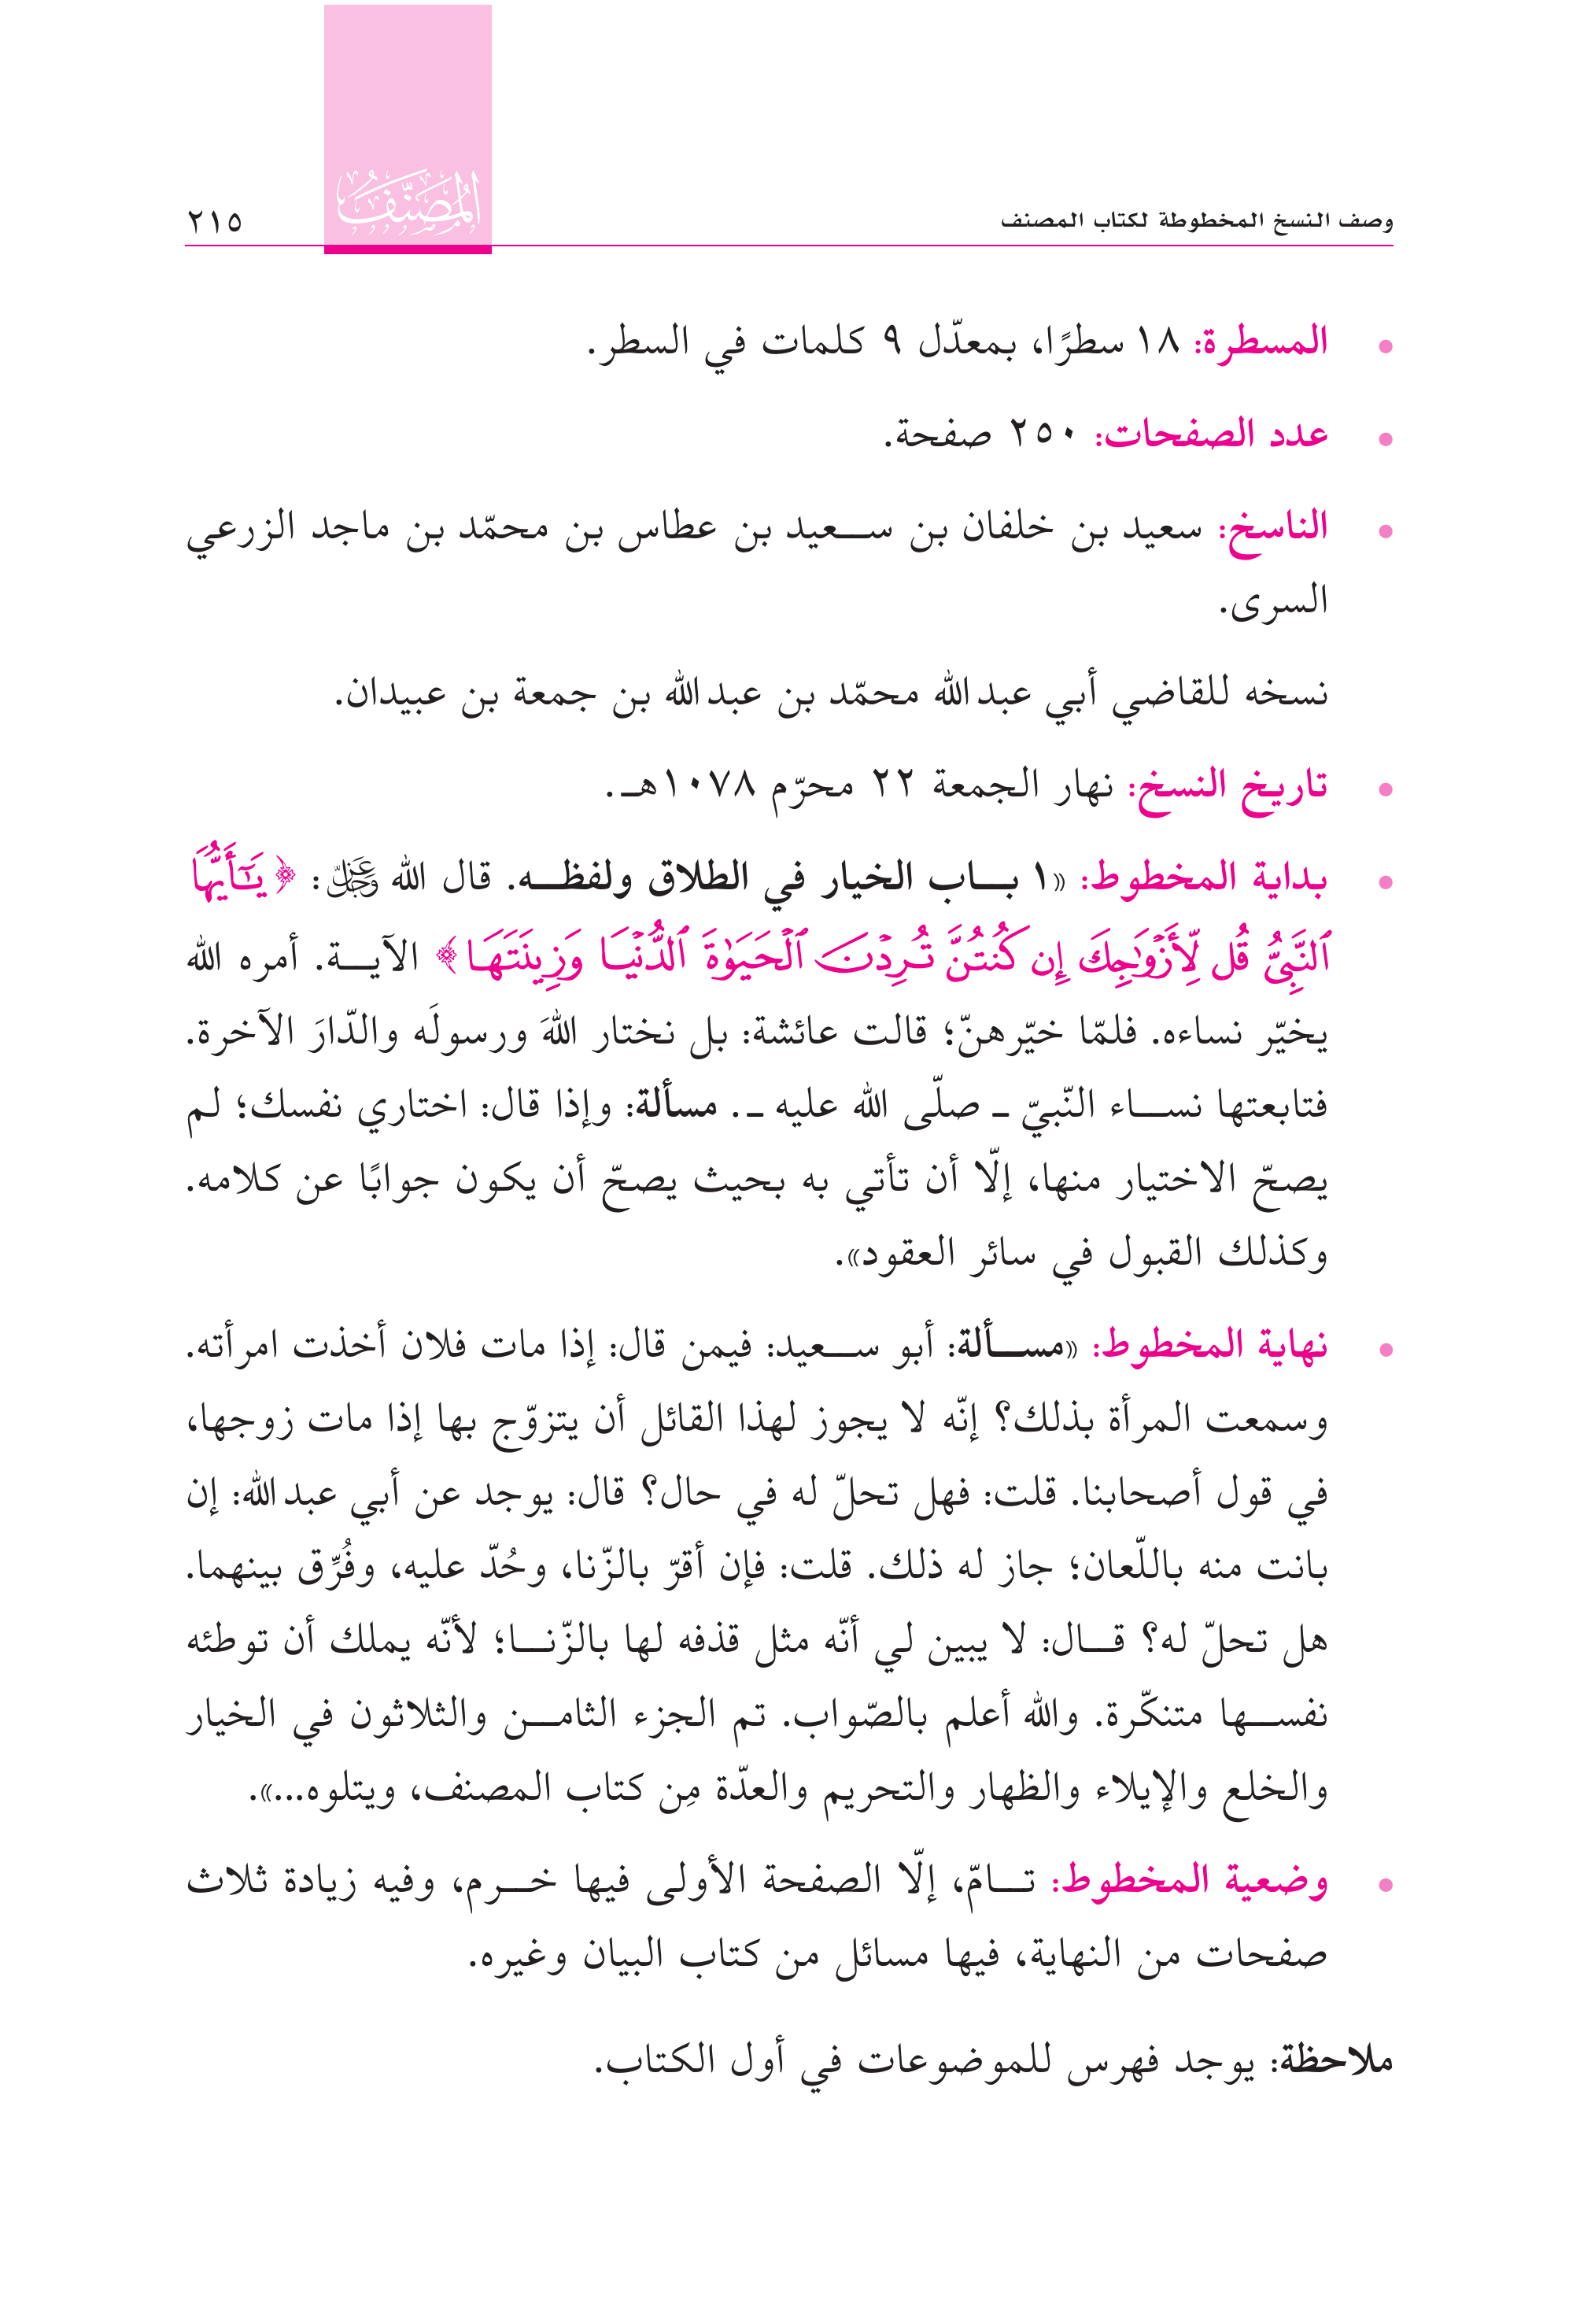 وصف النسخ المخطوطة لكتاب المصنف
المصنّف
٢١٥
• المسطرة: ١٨ سطرًا، بمعدّل ٩ كلمات في السطر.
• عدد الصفحات: ٢٥٠ صفحة.
• الناسخ: سعيد بن خلفان بن سـعيد بن عطاس بن محمّد بن ماجد الزرعي
السرى.
نسخه للقاضي أبي عبد الله محمّد بن عبد الله بن جمعة بن عبيدان.
• تاريخ النسخ: نهار الجمعة ٢٢ محرّم ١٠٧٨هـ.
• بداية المخطوط: «١ بـاب الخيار في الطلاق ولفظـه. قال الله عَزَّ وَجَلَّ: ﴿ يَـٰٓأَيُّهَا
ٱلنَّبِىُّ قُل لِّأَزْوَٰجِكَ إِن كُنتُنَّ تُرِدْنَ ٱلْحَيَوٰةَ ٱلدُّنْيَا وَزِينَتَهَا ﴾ الآيـة. أمره الله
يخيّر نساءه. فلمّا خيّرهنّ؛ قالت عائشة: بل نختار اللهَ ورسولَه والدّارَ الآخرة.
فتابعتها نسـاء النّبيّ ـ صلّى الله عليه ـ. مسألة: وإذا قال: اختاري نفسك؛ لم
يصحّ الاختيار منها، إلّا أن تأتي به بحيث يصحّ أن يكون جوابًا عن كلامه.
وكذلك القبول في سائر العقود».
• نهاية المخطوط: «مسـألة: أبو سـعيد: فيمن قال: إذا مات فلان أخذت امرأته.
وسمعت المرأة بذلك؟ إنّه لا يجوز لهذا القائل أن يتزوّج بها إذا مات زوجها،
في قول أصحابنا. قلت: فهل تحلّ له في حال؟ قال: يوجد عن أبي عبد الله: إن
بانت منه باللّعان؛ جاز له ذلك. قلت: فإن أقرّ بالزّنا، وحُدّ عليه، وفُرِّق بينهما.
هل تحلّ له؟ قـال: لا يبين لي أنّه مثل قذفه لها بالزّنـا؛ لأنّه يملك أن توطئه
نفسـها متنكّرة. والله أعلم بالصّواب. تم الجزء الثامـن والثلاثون في الخيار
والخلع والإيلاء والظهار والتحريم والعدّة مِن كتاب المصنف، ويتلوه...».
• وضعية المخطوط: تـامّ، إلّا الصفحة الأولى فيها خـرم، وفيه زيادة ثلاث
صفحات من النهاية، فيها مسائل من كتاب البيان وغيره.
ملاحظة: يوجد فهرس للموضوعات في أول الكتاب.